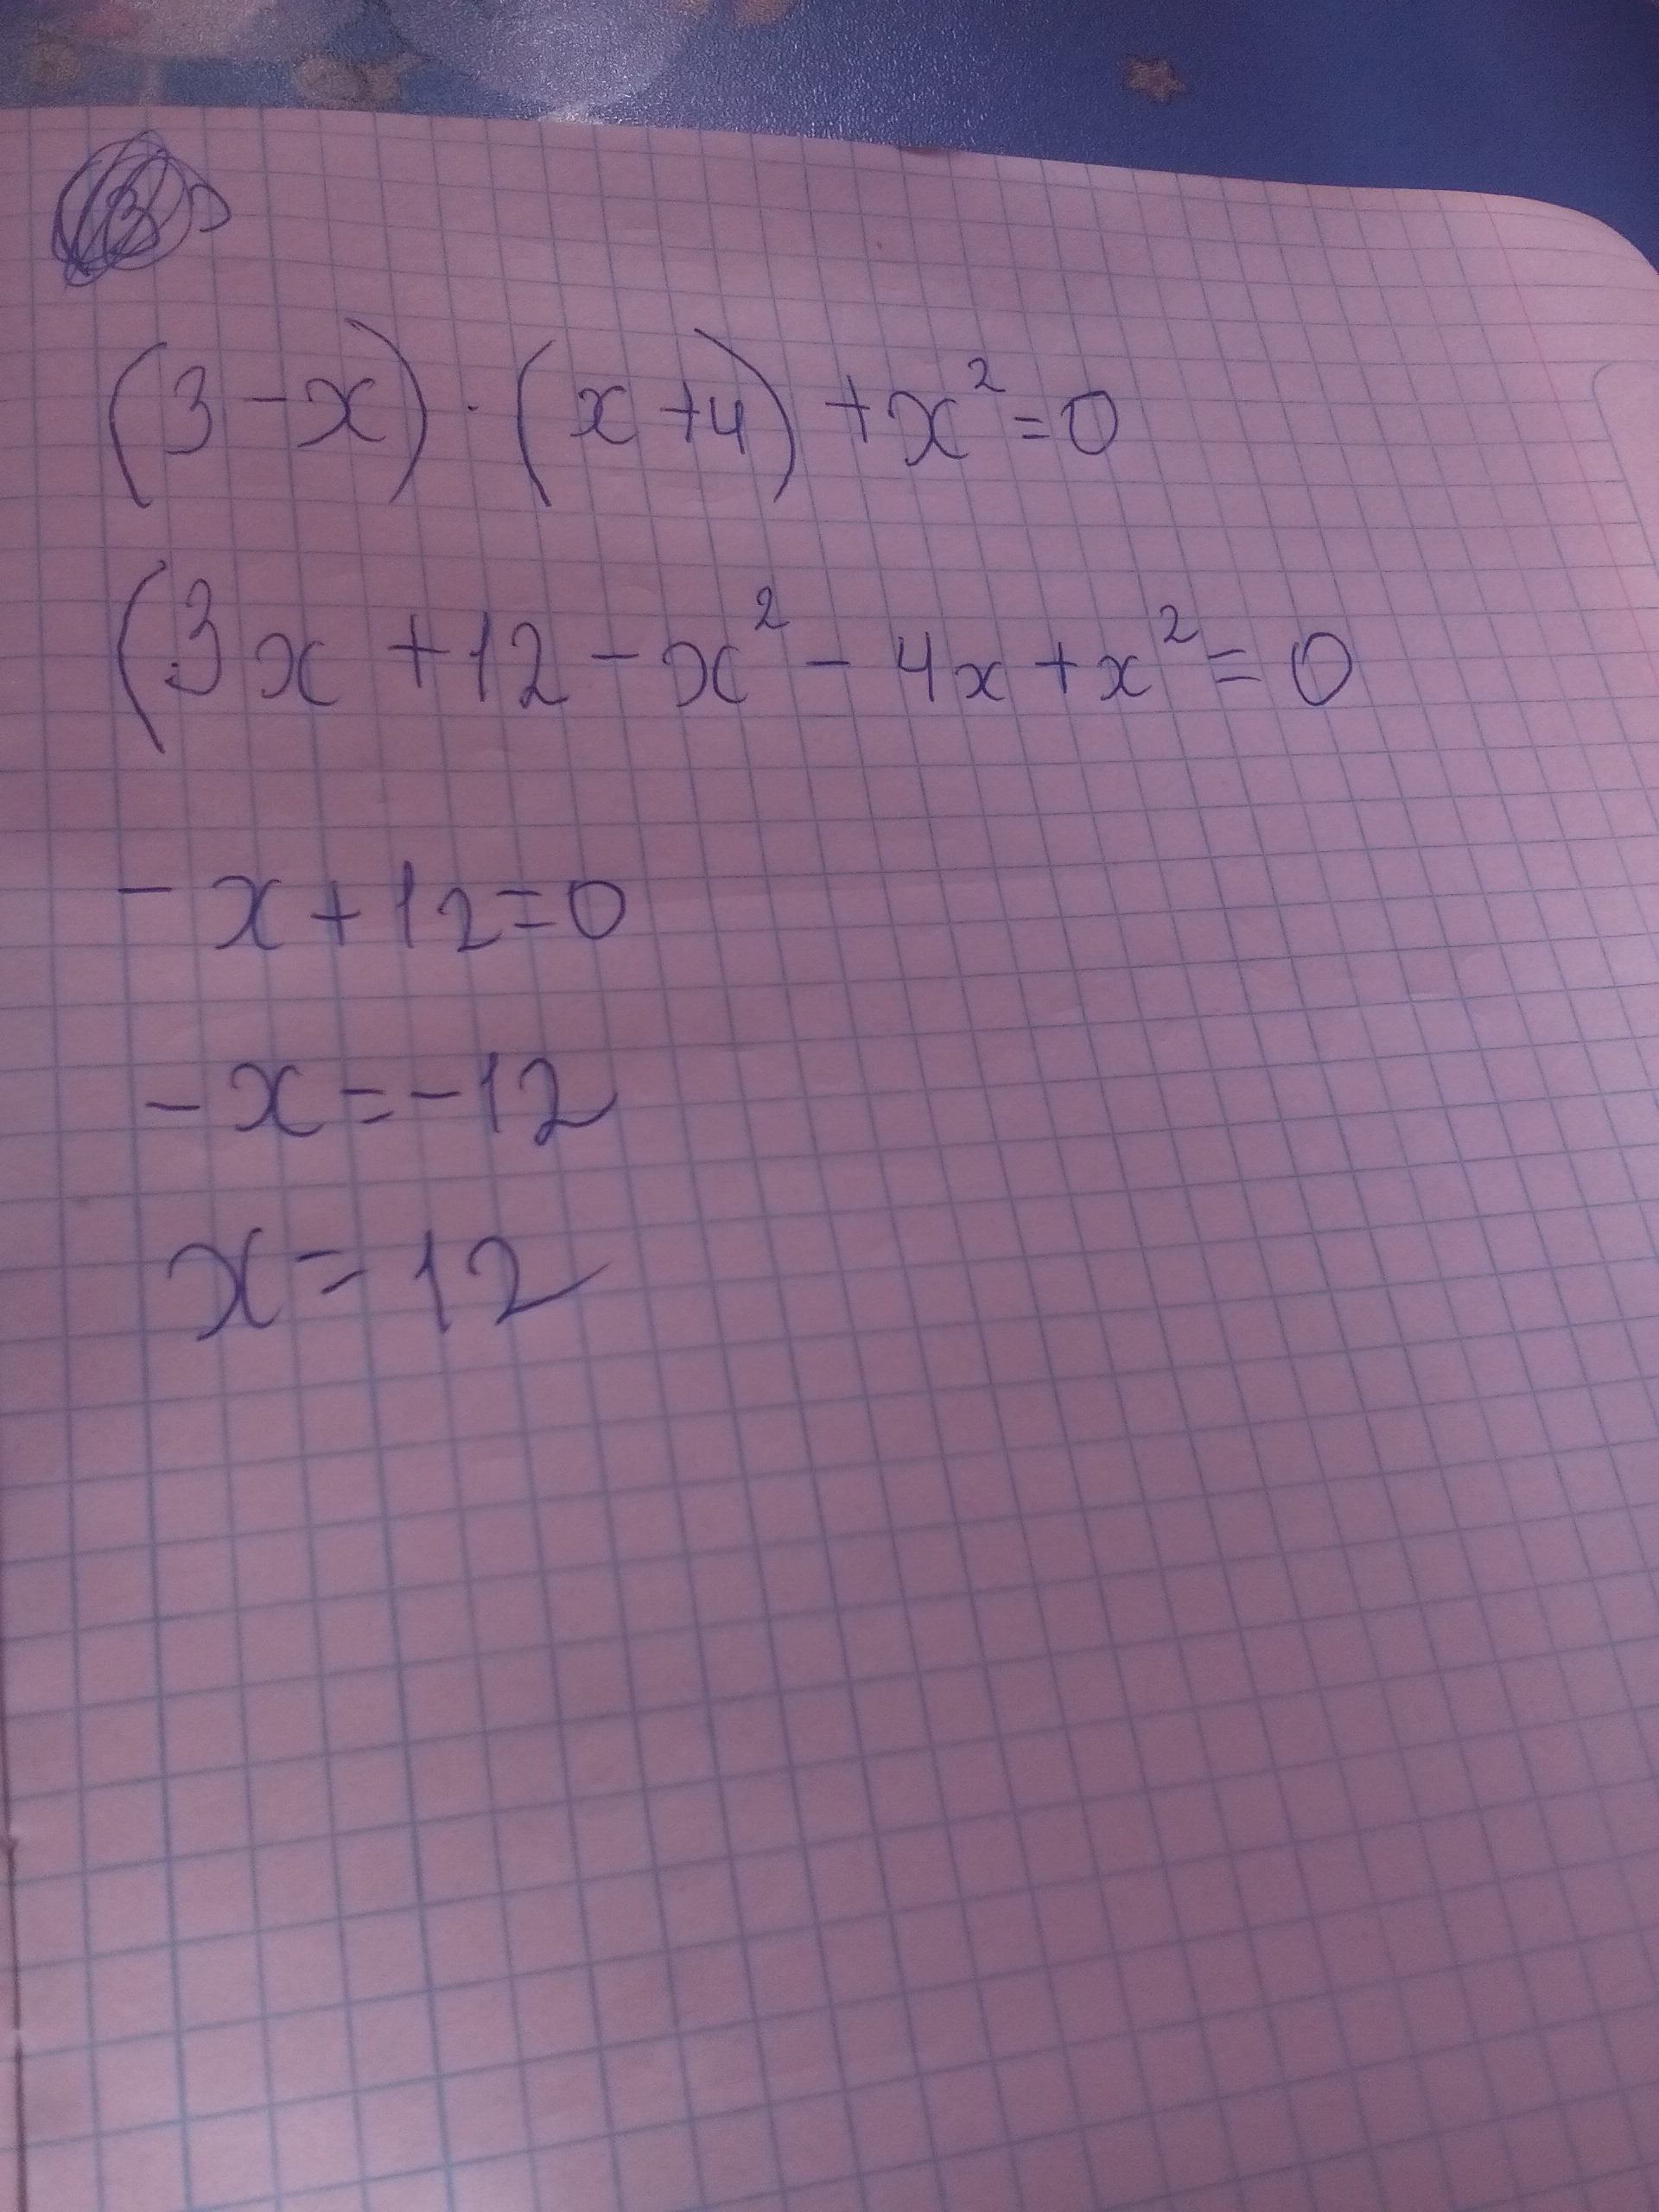 (3 - x) · (x + 4) + x² = 0
(3x + 12 - x² - 4x + x² = 0
- x + 12 = 0
- x = - 12
x = 12